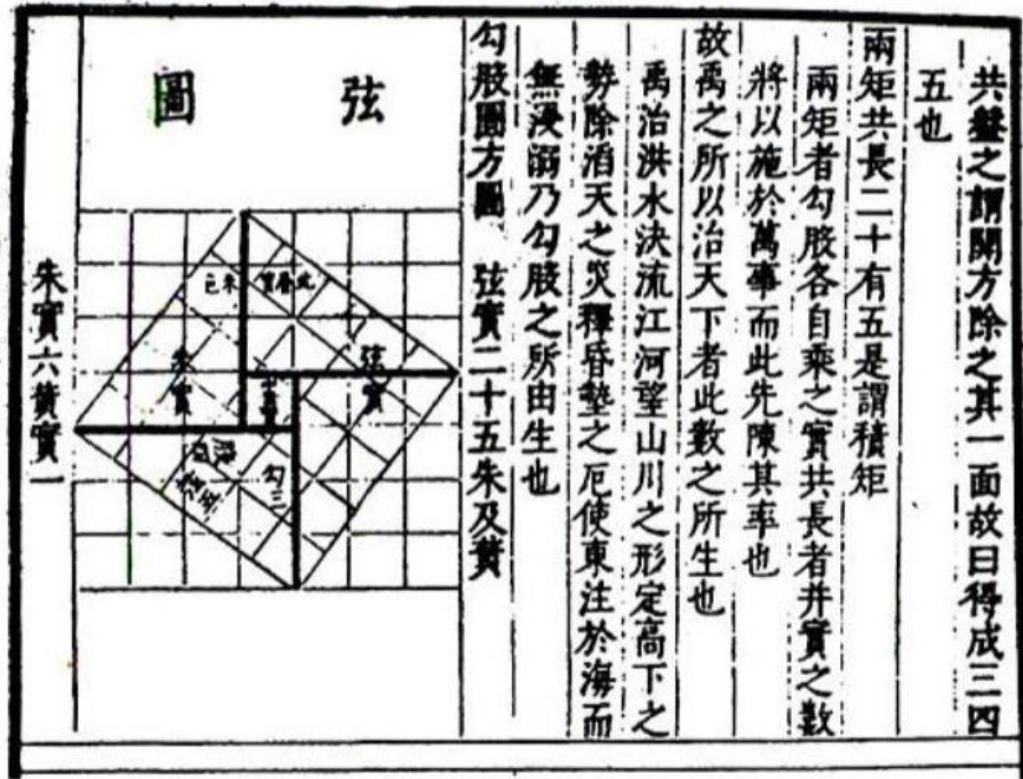 共盤之謂開方除之其一面故曰得成三四
五也
兩矩共長二十有五是謂積矩
兩矩者勾股各自乘之實共長者并實之數
將以施於萬事而此先陳其率也
故禹之所以治天下者此數之所生也
禹治洪水決流江河望山川之形定高下之
勢除滔天之災釋昏墊之厄使東注於海而
無浸溺乃勾股之所由生也
勾股圓方圖　弦實二十五朱及黃
弦圖
弦實
朱實
勾三
弦五
朱實六黃實一